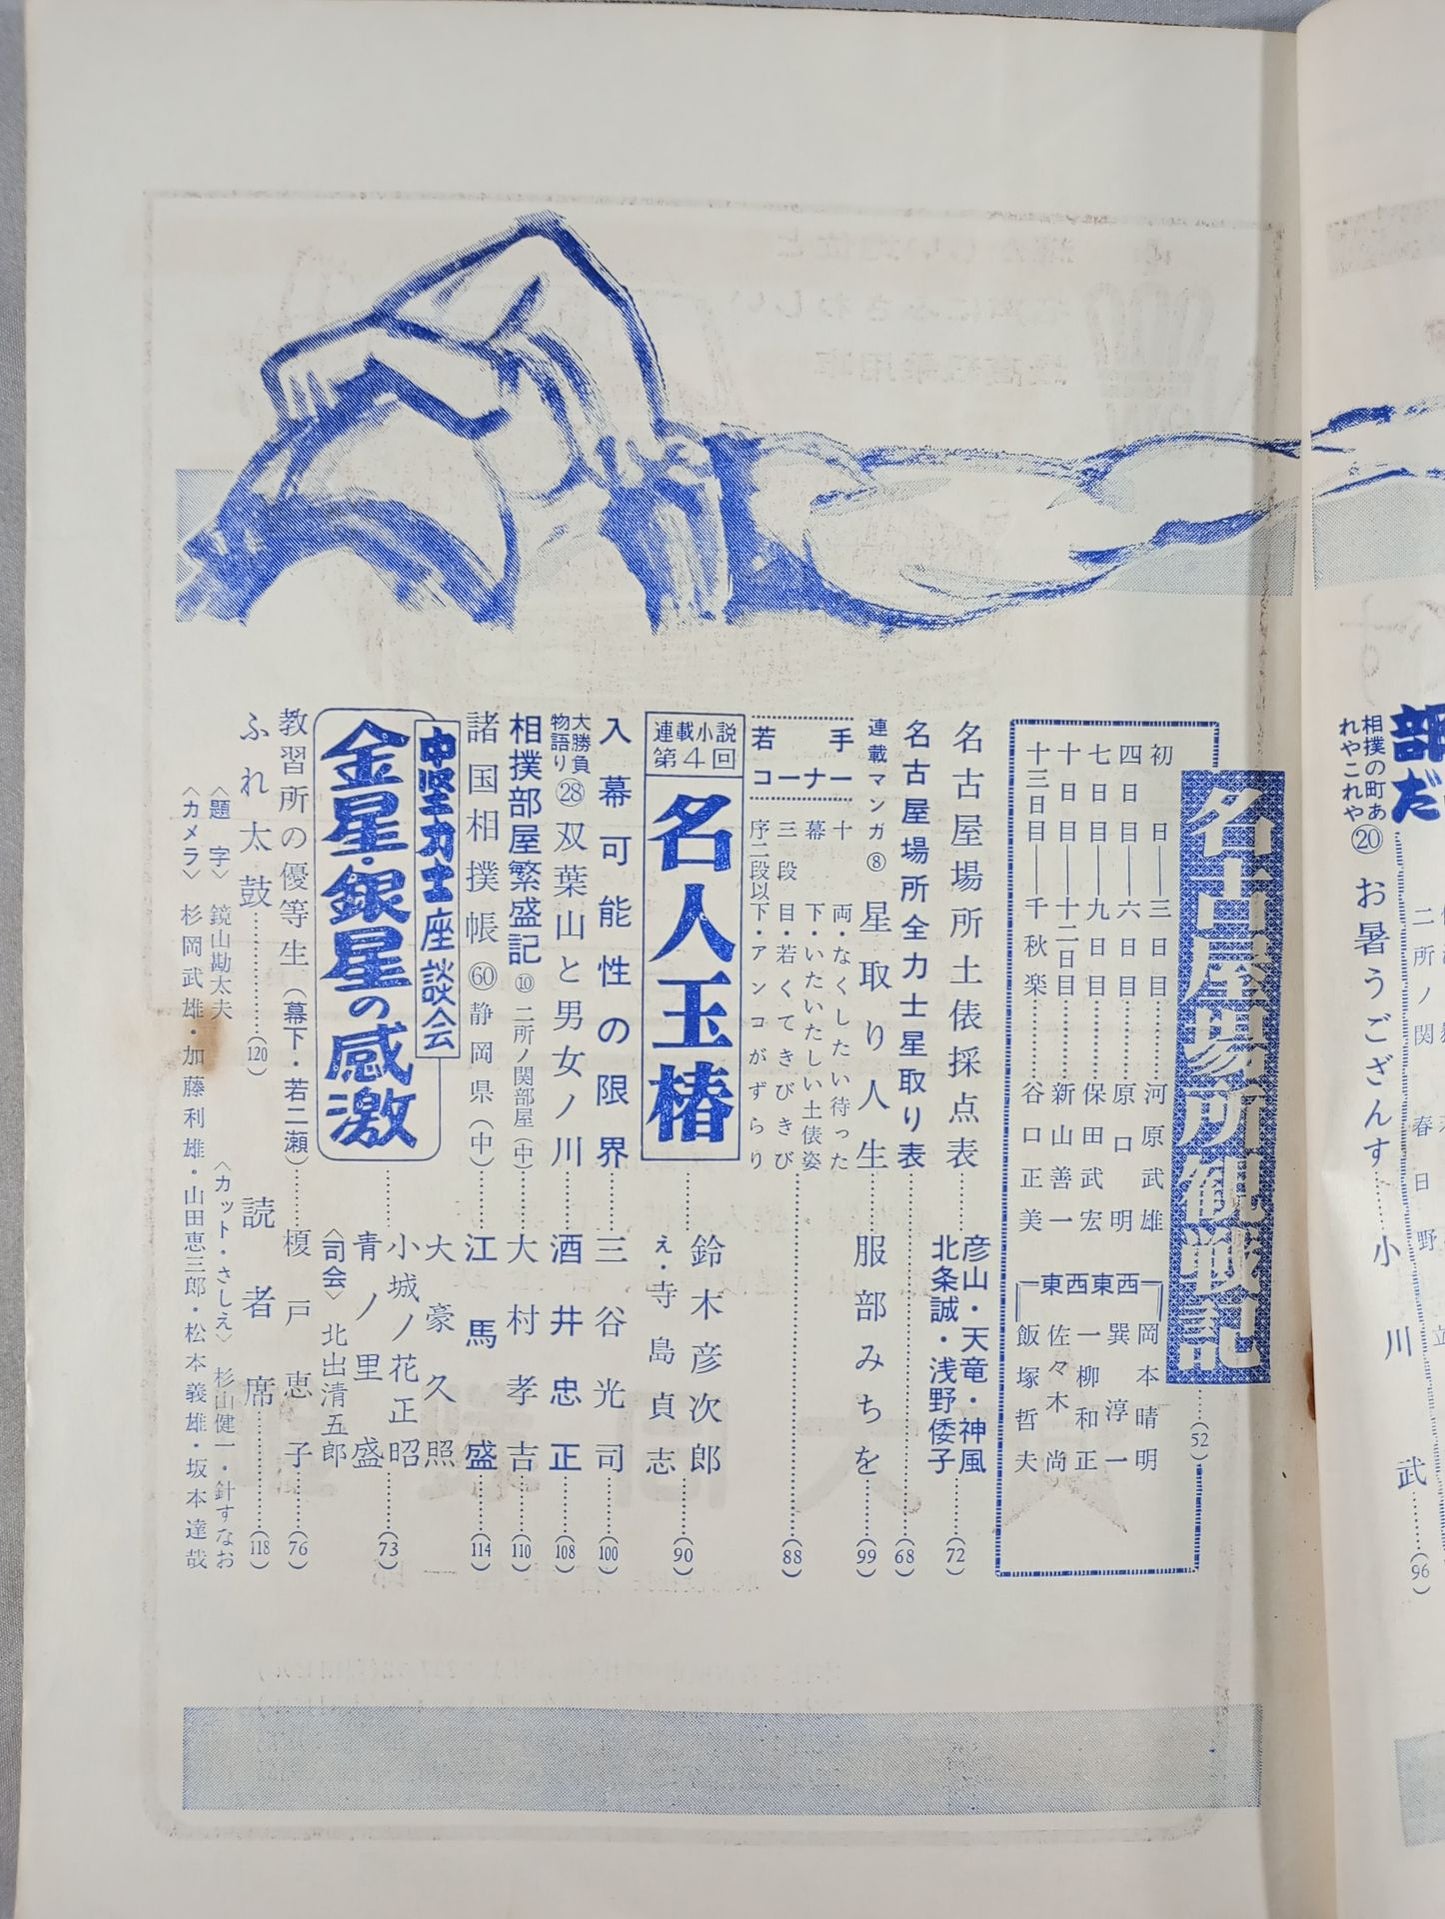 相撲の町あれやこれや⑳ お暑うござんす……小川武……(96)
名古屋場所観戦記……(52)
初日――三日目……河原武雄
四日目――六日目……原口明
七日目――九日目……保田武宏
十日目――十二日目……新山善一
十三日目――千秋楽……谷口正美
西 岡本晴明
東 巽淳一
西 一柳和正
東 佐々木尚
飯塚哲夫
名古屋場所土俵採点表……彦山・天竜・神風
北条誠・浅野倭子……(72)
名古屋場所全力士星取り表……(68)
連載マンガ⑧ 星取り人生……服部みちを……(99)
若手コーナー
十両・なくしたい待った
幕下・いたいたしい土俵姿
三段目・若くてきびきび
序二段以下・アンコがずらり
……(88)
連載小説 第4回
名人玉椿……鈴木彦次郎
え・寺島貞志……(90)
入幕可能性の限界……三谷光司……(100)
大勝負物語り㉘ 双葉山と男女ノ川……酒井忠正……(108)
相撲部屋繁盛記⑩ 二所ノ関部屋(中)……大村孝吉……(110)
諸国相撲帳㊿ 静岡県(中)……江馬盛……(114)
中堅力士座談会
金星・銀星の感激……
大豪久照
小城ノ花正昭
青ノ里盛
〈司会〉北出清五郎
……(73)
教習所の優等生(幕下・若二瀬)……榎戸恵子……(76)
ふれ太鼓……(120)
読者席……(118)
〈題字〉鏡山勘太夫
〈カット・さしえ〉杉山健一・針すなお
〈カメラ〉杉岡武雄・加藤利雄・山田恵三郎・松本義雄・坂本達哉